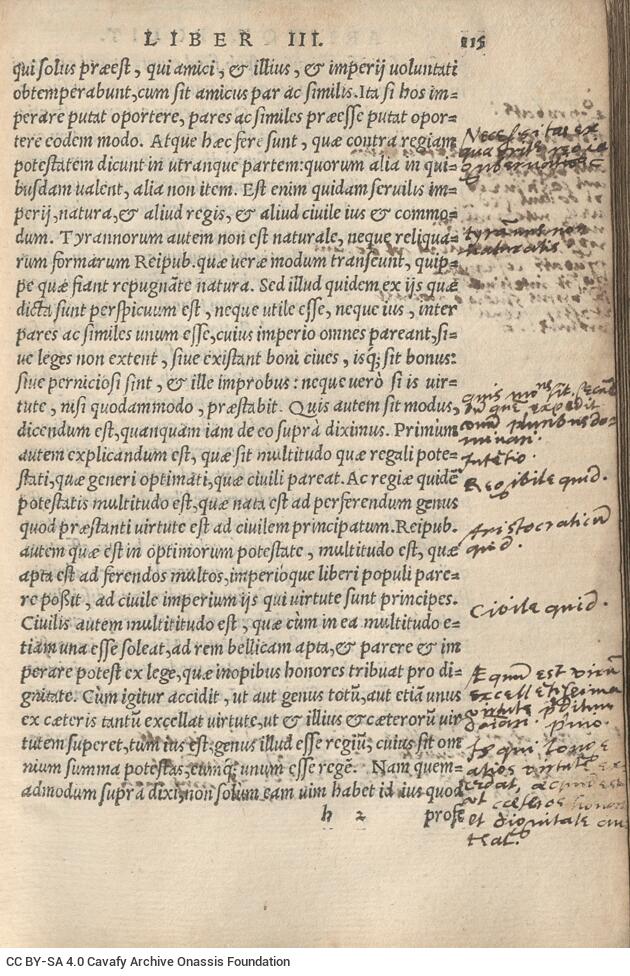 LIBER III. 115
qui solus præest, qui amici, & illius, & imperij voluntati
obtemperabunt, cum sit amicus par ac similis. Ita si hos im=
perare putat oportere, pares ac similes præesse putat opor=
tere eodem modo. Atque hæc fere sunt, quæ contra regiam
potestatem dicunt in utranque partem: quorum alia in qui=
busdam ualent, alia non item. Est enim quidam seruilis im=
perij, natura, & aliud regis, & aliud ciuile ius & commo=
dum. Tyrannorum autem non est naturale, neque reliqua=
rum formarum Reipub. quæ ueræ modum transeunt, quip=
pe quæ fiant repugnāte natura. Sed illud quidem ex ijs quæ
dicta sunt perspicuum est, neque utile esse, neque ius, inter
pares ac similes unum esse, cuius imperio omnes pareant, si=
ue leges non extent, siue existant boni ciues, isq; sit bonus:
siue perniciosi sint, & ille improbus: neque uerò si is uir=
tute, nisi quodammodo, præstabit. Quis autem sit modus,
dicendum est, quanquam iam de eo suprà diximus. Primùm
autem explicandum est, quæ sit multitudo quæ regali pote=
stati, quæ generi optimati, quæ ciuili pareat. Ac regiæ quidē
potestatis multitudo est, quæ nata est ad perferendum genus
quod præstanti uirtute est ad ciuilem principatum. Reipub.
autem quæ est in optimorum potestate, multitudo est, quæ
apta est ad ferendos multos, imperióque liberi populi pare=
re poßit, ad ciuile imperium ijs qui uirtute sunt principes.
Ciuilis autem multititudo est, quæ cùm in ea multitudo e=
tiam una esse soleat, ad rem bellicam apta, & parere & im
perare potest ex lege, quæ inopibus honores tribuat pro di=
gnitate. Cùm igitur accidit, ut aut genus totū, aut etiā unus
ex cæteris tantū excellat uirtute, ut & illius & cæterorū uir
tutem superet, tum ius est, genus illud esse regiū, cuius sit om
nium summa potestas, eumq; unum esse regē. Nam quem=
admodum suprà dixi, non solùm eam uim habet id ius quod
h 2 profe
Necessitas ex
tyrannus non
naturalis
Intētio.
Regibile quid.
Aristocraticū
quid.
Civile quid.
Æquum est virum
excellētissima
virtute
et dignitate